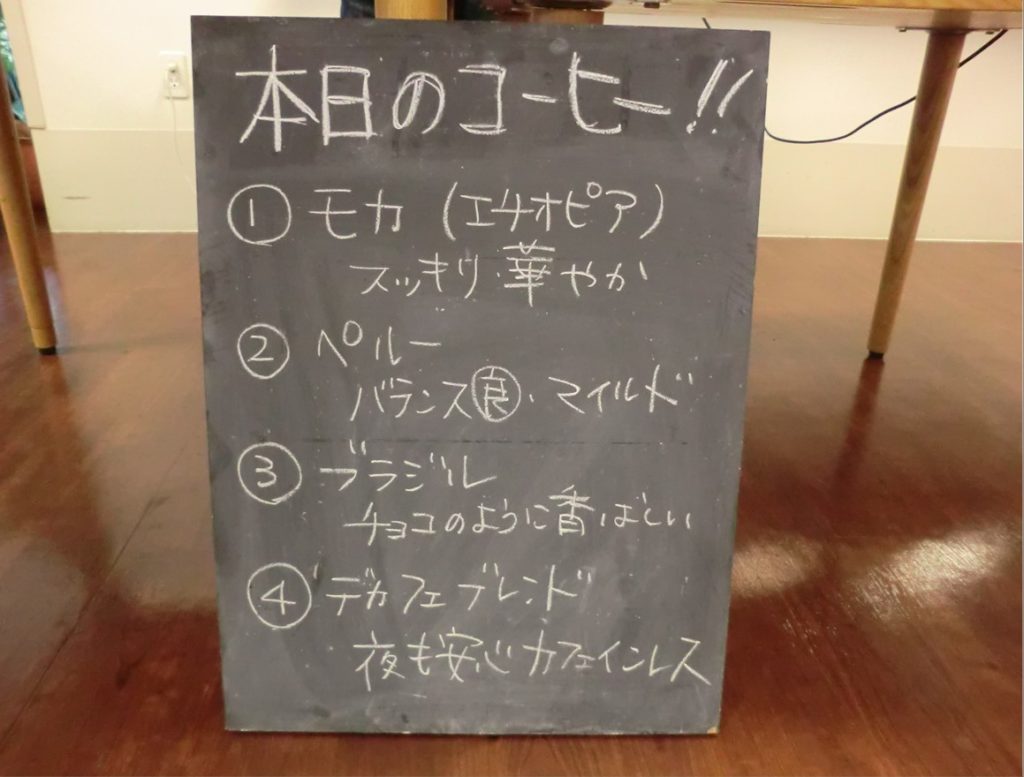 本日のコーヒー!!
① モカ (エチオピア)
スッキリ・華やか
② ペルー
バランス㊜・マイルド
③ ブラジル
チョコのように香ばしい
④ デカフェブレンド
夜も安心カフェインレス